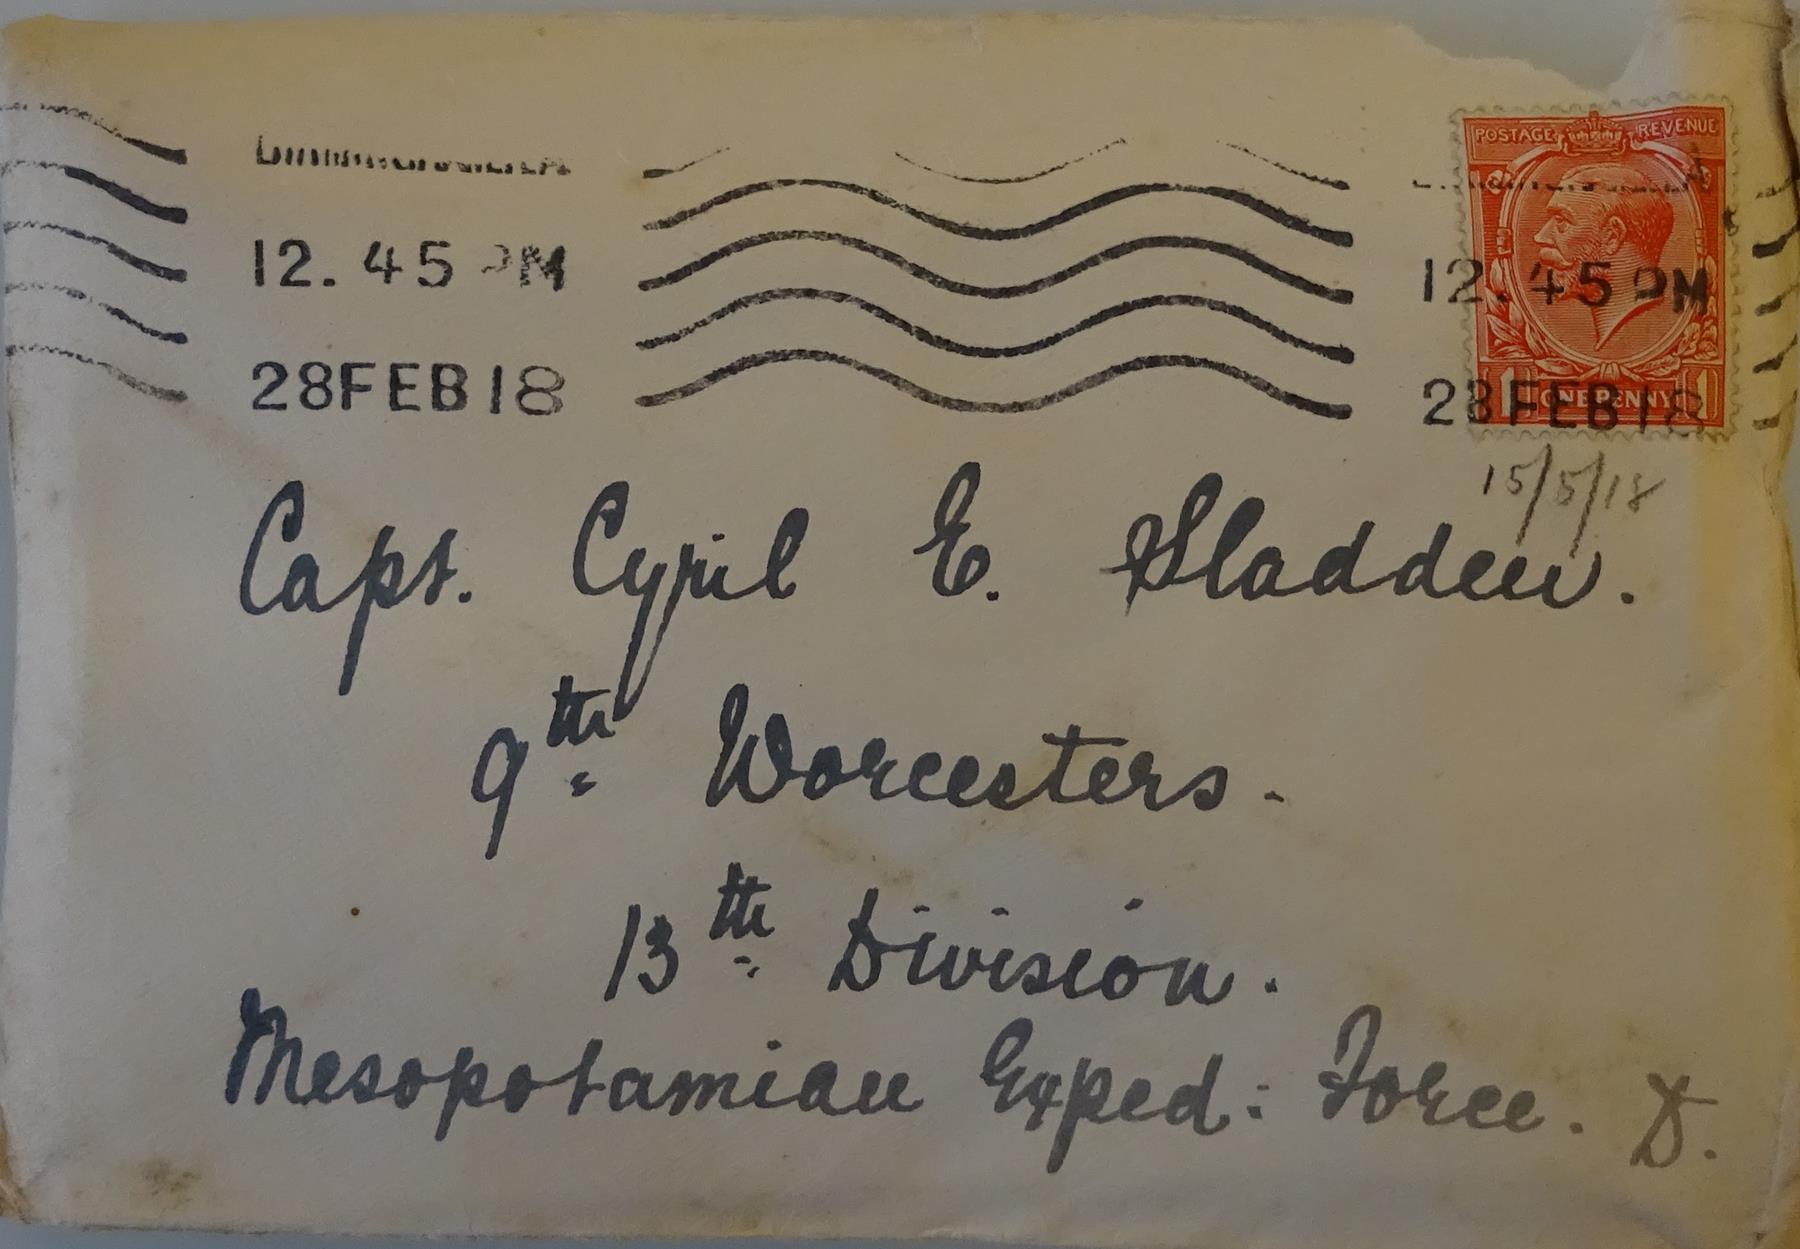 12.45 PM
28FEB18
POSTAGE REVENUE
12.45 PM
28FEB18
1 ONE PENNY 1
15/5/18
Capt. Cyril E. Sladden.
9th Worcesters.
13th Division.
Mesopotamian Exped: Force. D.